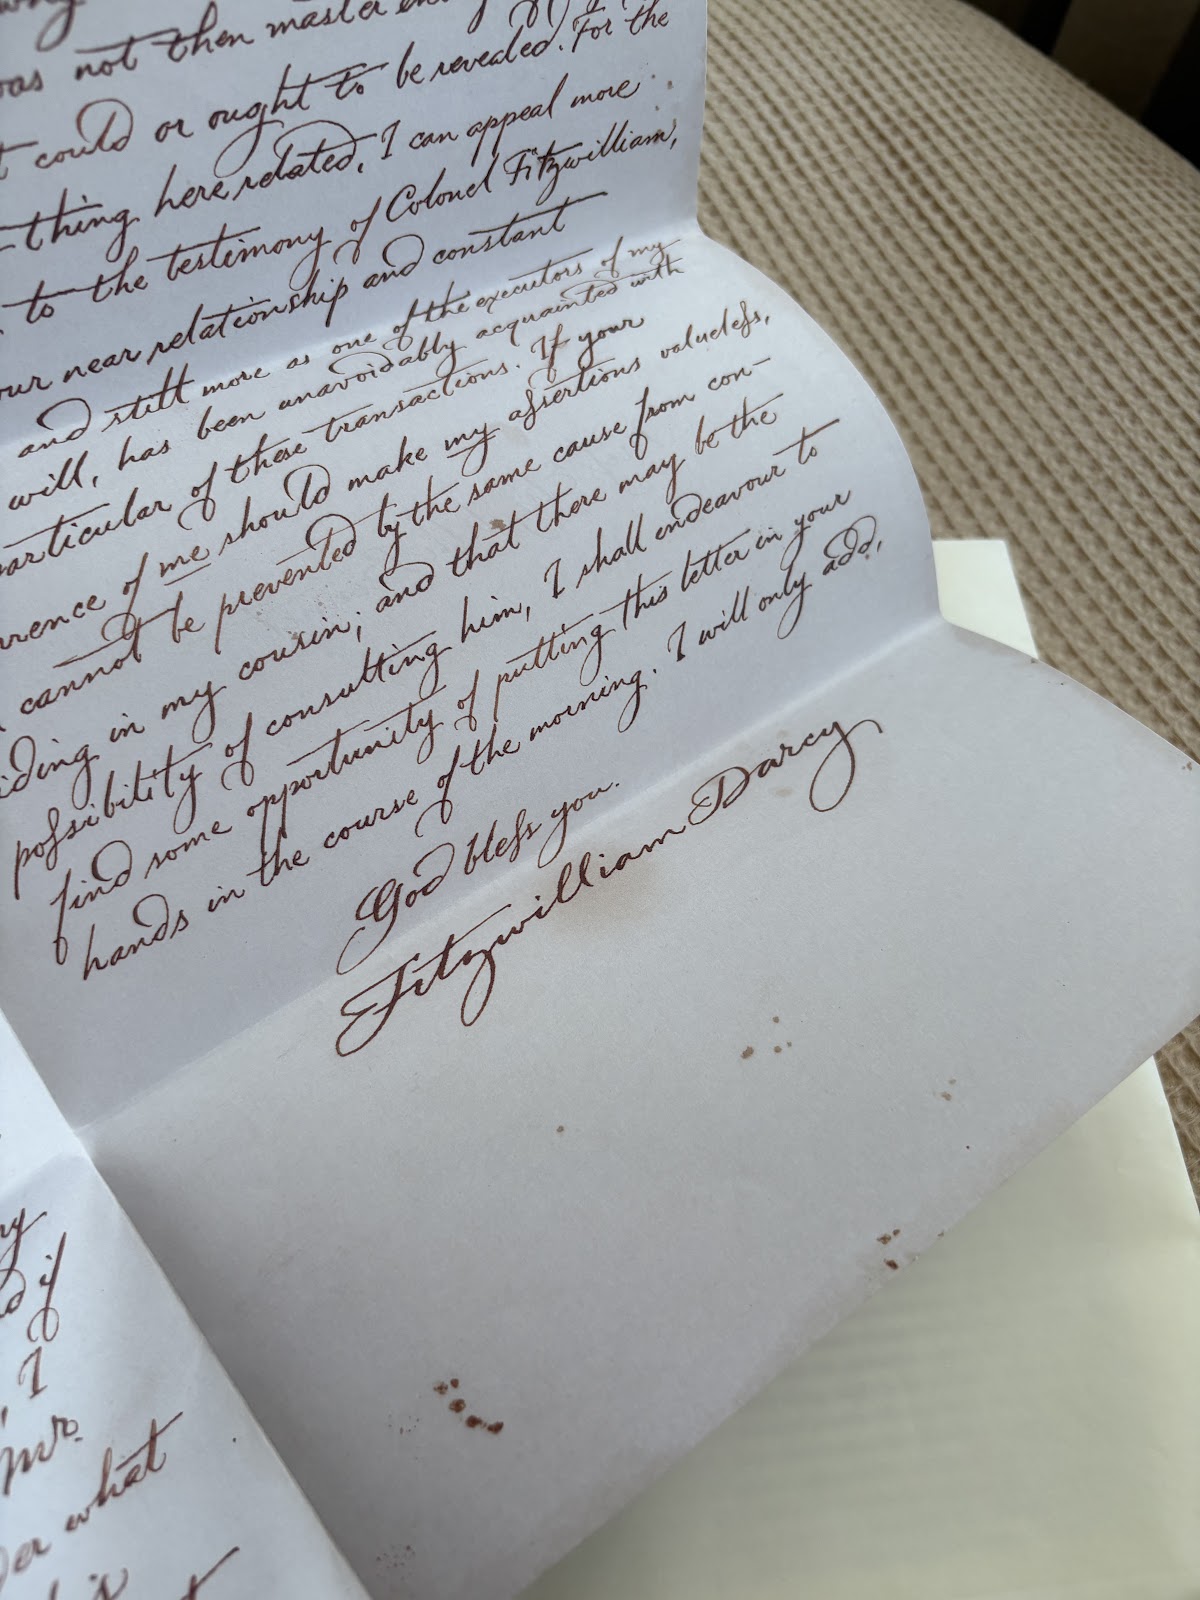 was not then master en
could or ought to be revealed. For the
thing here related, I can appeal more
to the testimony of Colonel Fitzwilliam,
our near relationship and constant
and still more as one of the executors of my
will, has been unavoidably acquainted with
particular of these transactions. If your
rrence of me should make my aſsertions valueleſs,
cannot be prevented by the same cause from con-
iding in my cousin; and that there may be the
poſsibility of consulting him, I shall endeavour to
find some opportunity of putting this letter in your
hands in the course of the morning. I will only add,
God bleſs you.
Fitzwilliam Darcy
ry
d if
, I
Mr.
der what
his